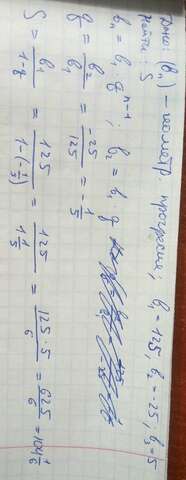 Дано: (bₙ) – геометр. прогрессия; b₁ = 125, b₂ = -25, b₃ = 5
Найти: S
bₙ = b₁ · q^(n-1); b₂ = b₁ · q
q = b₂/b₁ = -25/125 = -1/5
S = b₁/(1-q) = 125/(1-(-1/5)) = 125/(1 1/5) = 125·5/6 = 625/6 = 104 1/6